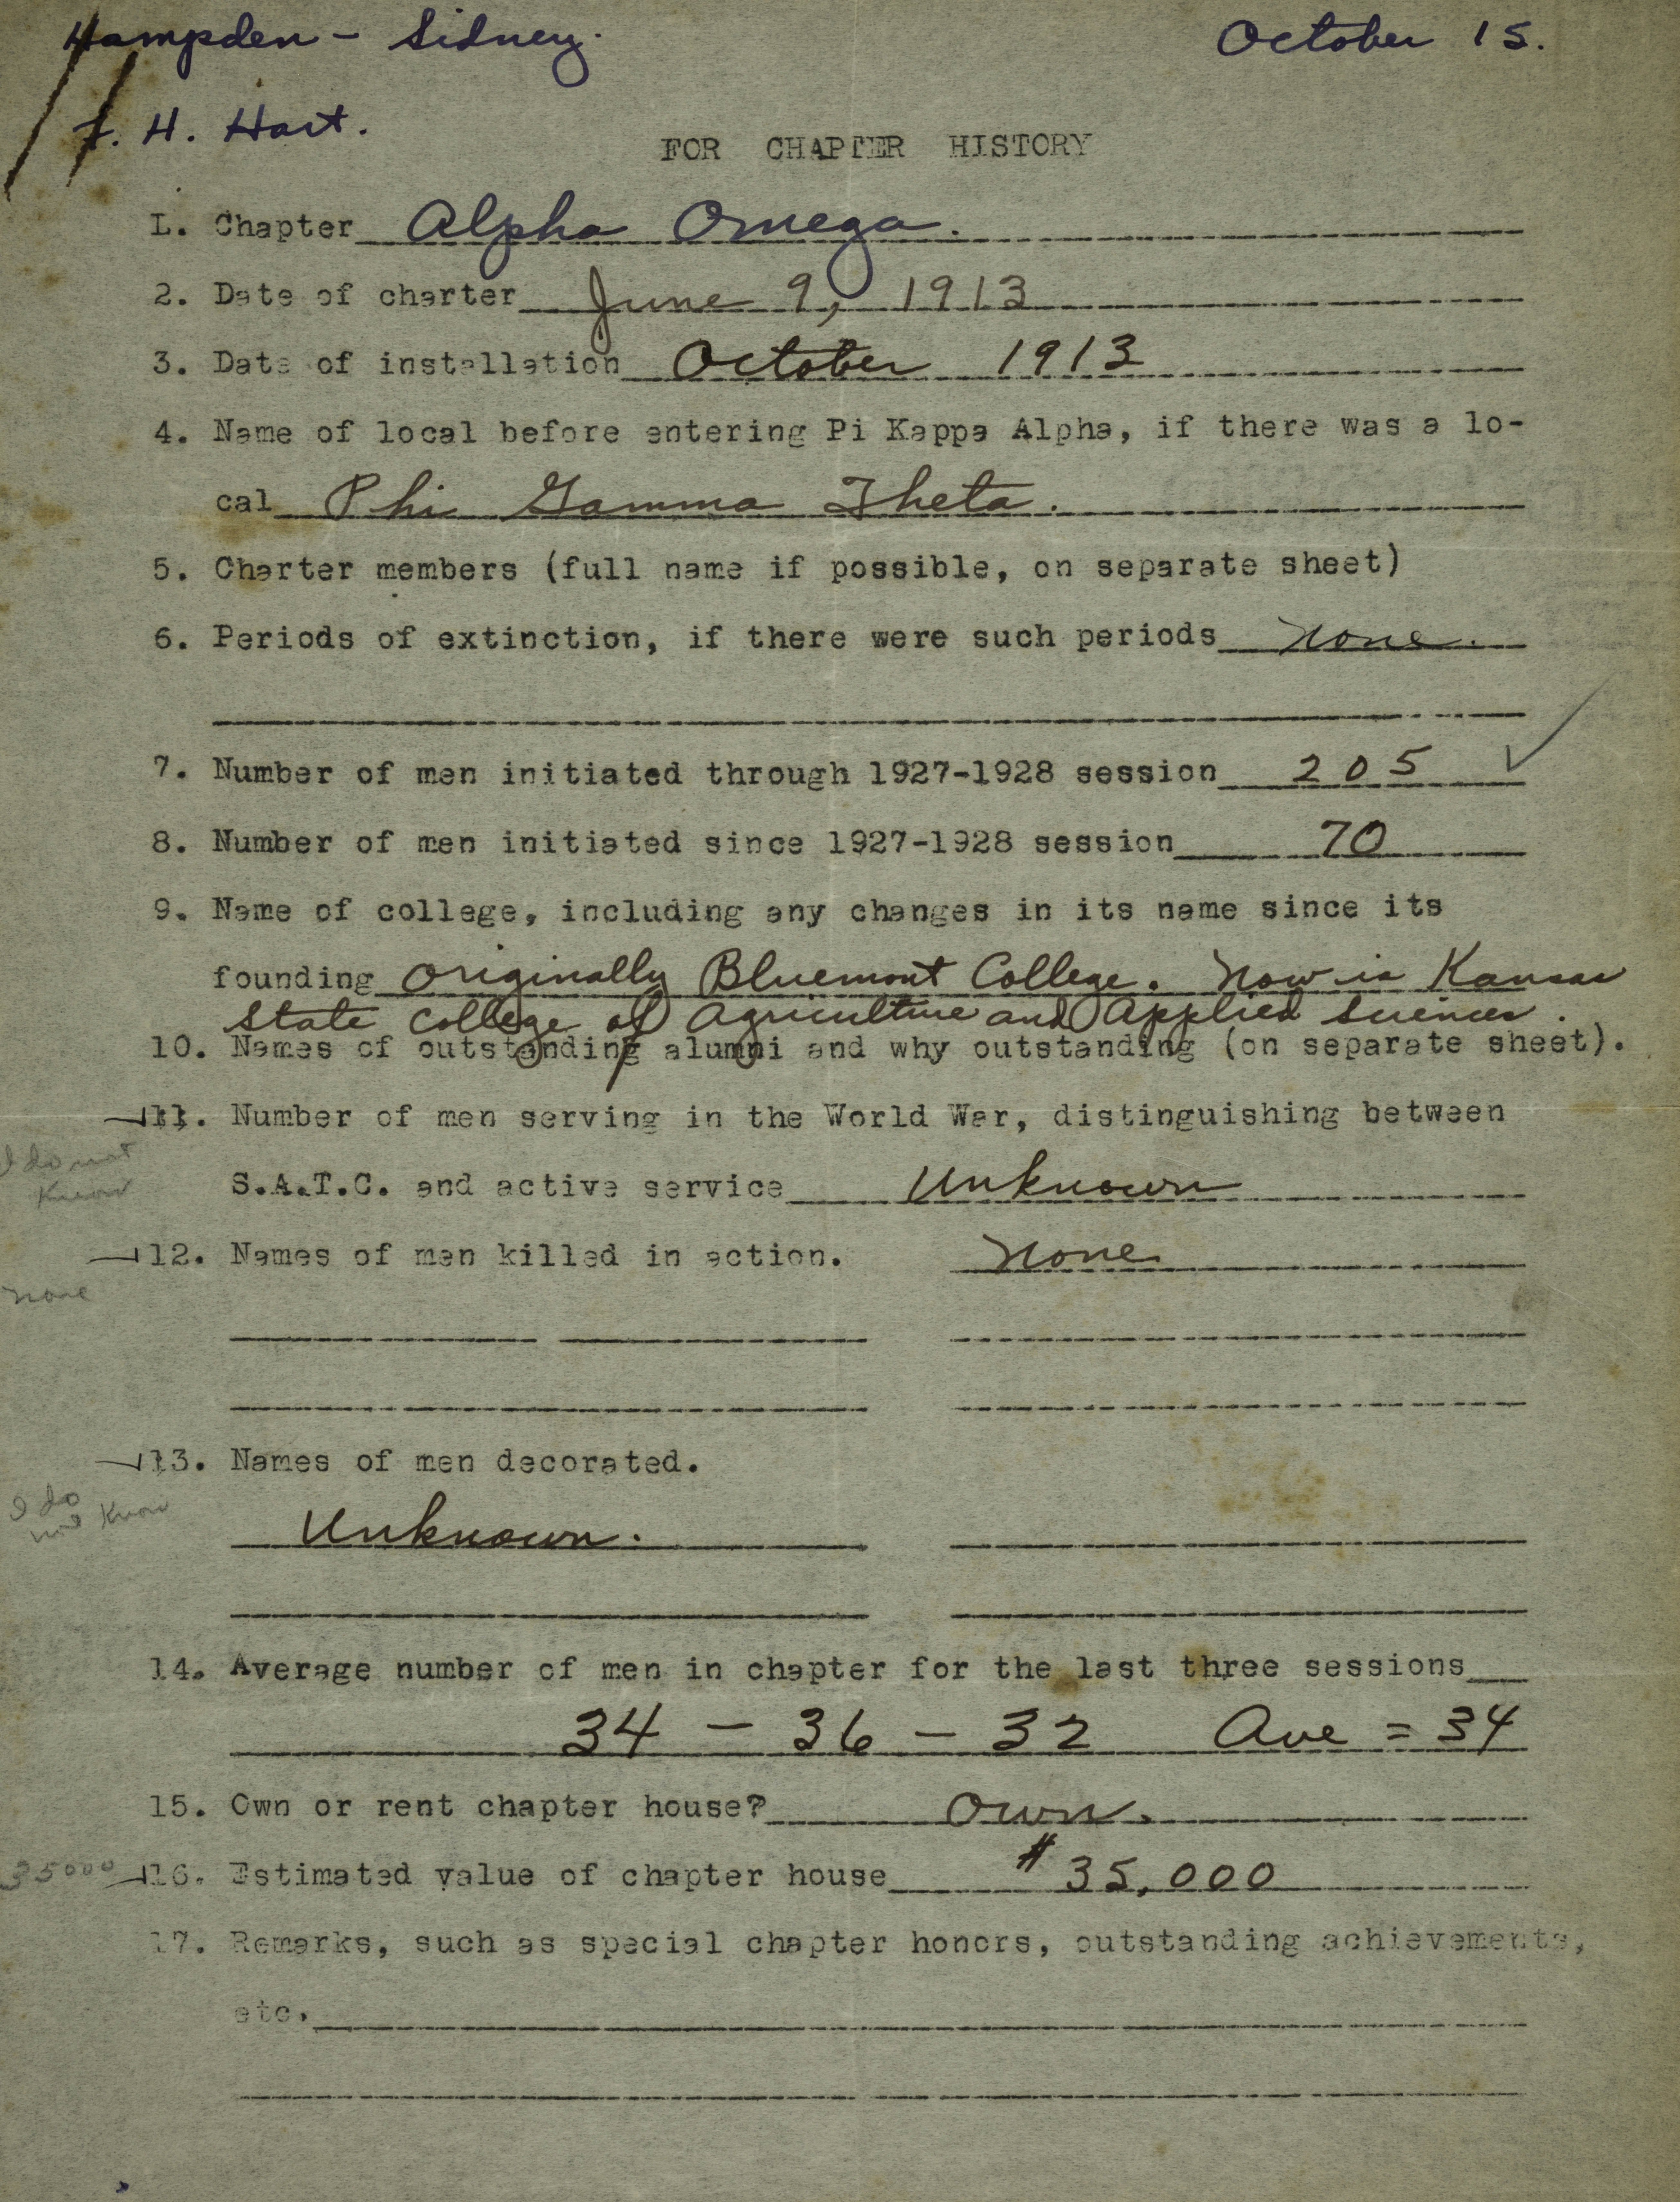 Hampden - Sidney.
October 15.
F. H. Hart.
FOR CHAPTER HISTORY
1. Chapter Alpha Omega.
2. Date of charter June 9, 1913
3. Date of installation October 1913
4. Name of local before entering Pi Kappa Alpha, if there was a lo-
cal Phi Gamma Theta.
5. Charter members (full name if possible, on separate sheet)
6. Periods of extinction, if there were such periods None.
7. Number of men initiated through 1927-1928 session 205 ✓
8. Number of men initiated since 1927-1928 session 70
9. Name of college, including any changes in its name since its
founding Originally Bluemont College. Now is Kansas
State College of Agriculture and Applied Sciences.
10. Names of outstanding alumni and why outstanding (on separate sheet).
11. Number of men serving in the World War, distinguishing between
I do not
know
S.A.T.C. and active service Unknown
12. Names of men killed in action. None
none
13. Names of men decorated.
I do
not know
Unknown.
14. Average number of men in chapter for the last three sessions
34 - 36 - 32 Ave = 34
15. Own or rent chapter house? Own.
35000 16. Estimated value of chapter house #35,000
17. Remarks, such as special chapter honors, outstanding achievements,
etc.